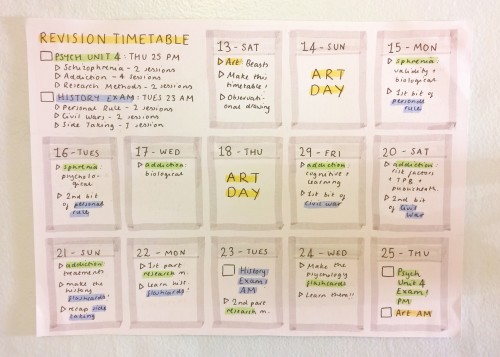 REVISION TIMETABLE
PSYCH UNIT 4 : THU 25 PM
▷ Schizophrenia - 2 sessions
▷ Addiction - 4 sessions
▷ Research Methods - 2 sessions
HISTORY EXAM : TUES 23 AM
▷ Personal Rule - 2 sessions
▷ Civil Wars - 2 sessions
▷ Side Taking - 1 session
13 - SAT
▷ Art Beasts
▷ Make this
timetable!
▷ Observati-
onal drawing
14 - SUN
ART
DAY
15 - MON
▷ Sphrenia
validity +
biological
▷ 1st bit of
personal
rule
16 - TUES
▷ Sphrenia:
psycholo-
gical
▷ 2nd bit
of personal
rule
17 - WED
▷ addiction:
biological
18 - THU
ART
DAY
29 - FRI
▷ addiction
cognitive +
learning
▷ 1st bit of
Civil War
20 - SAT
▷ addiction:
risk factors
+ TPB +
▷ 2nd bit
of Civil
War
21 - SUN
▷ addiction
treatments
▷ make the
history
flashcards!
▷ recap side
taking
22 - MON
▷ 1st part
research m.
▷ Learn hist.
flashcards!
23 - TUES
History
Exam!
AM
▷ 2nd part
research m.
24 - WED
▷ Make the
psychology
flashcards
▷ Learn them!!
25 - THU
Psych
Unit 4
Exam!
PM
Art AM